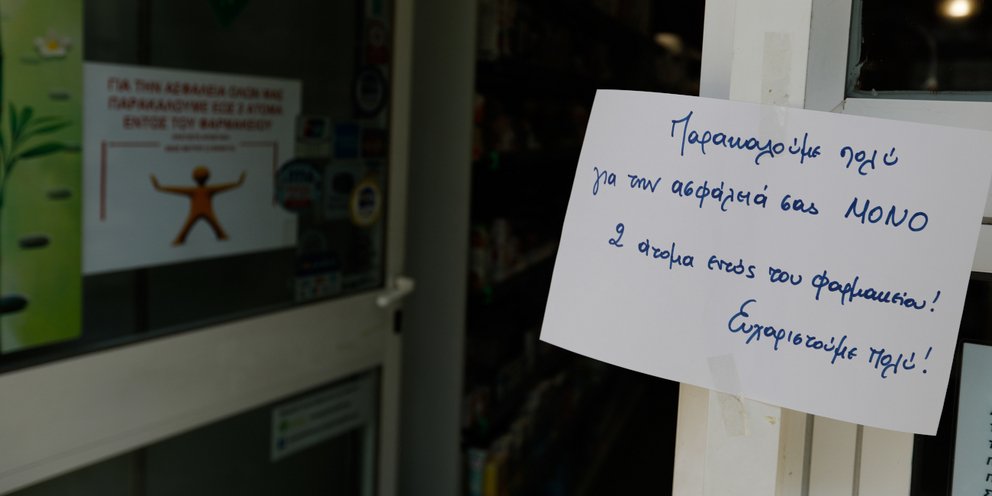 ΓΙΑ ΤΗΝ ΑΣΦΑΛΕΙΑ ΟΛΩΝ ΜΑΣ
ΠΑΡΑΚΑΛΟΥΜΕ ΕΩΣ 2 ΑΤΟΜΑ
ΕΝΤΟΣ ΤΟΥ ΦΑΡΜΑΚΕΙΟΥ
Παρακαλούμε πολύ
για την ασφάλειά σας ΜΟΝΟ
2 άτομα εντός του φαρμακείου!
Ευχαριστούμε πολύ!